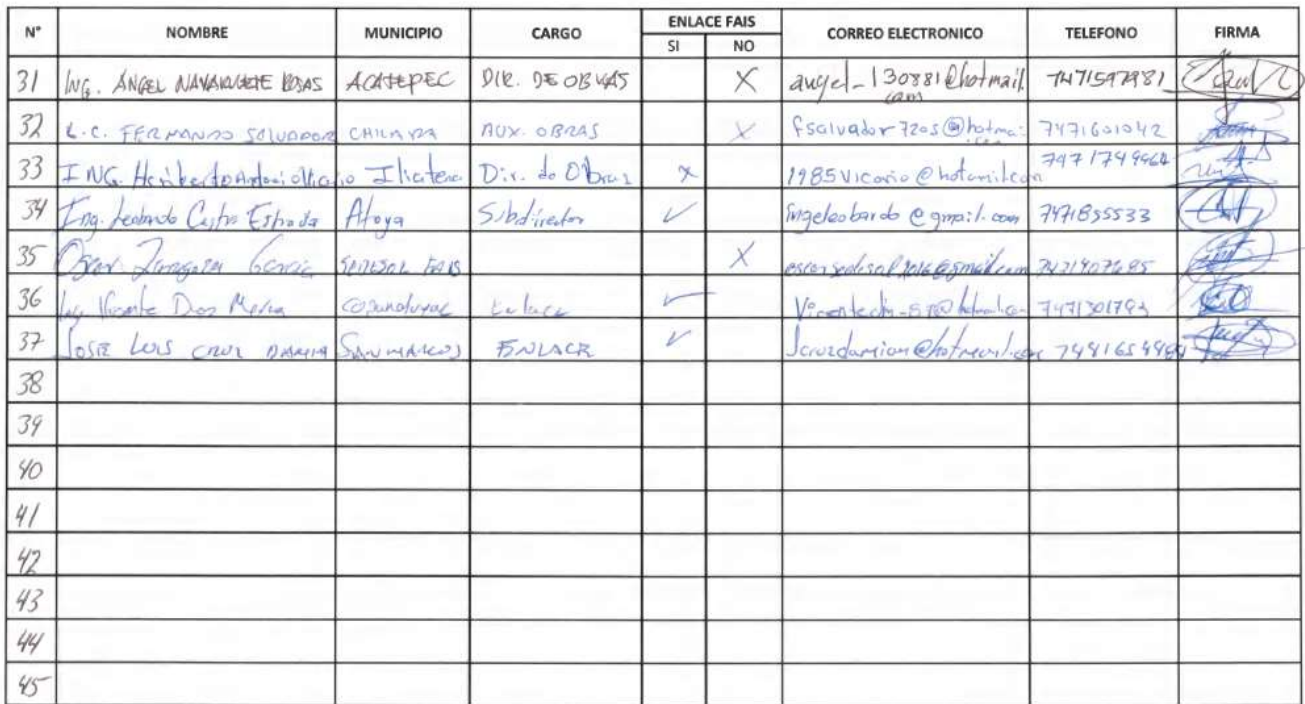 N° NOMBRE MUNICIPIO CARGO ENLACE FAIS CORREO ELECTRONICO TELEFONO FIRMA
SI NO
31 ING. ANGEL NAVARRETE ROSAS ACATEPEC DIR. DE OBRAS X angel_130881@hotmail.com 7471597981
32 L.C. FERNANDO SALVADOR CHILAPA AUX. OBRAS X fsalvador7205@hotmai 7471601042
33 ING. Heriberto Antonio Vicario Iliatenc Dir. de Obras x 1985vicario@hotmail.com 7471749464
34 Ing. Leobardo Castro Estrada Atoya Subdirector ✓ ingeleobardo@gmail.com 7471855533
35 Oscar Zaragoza Garcia SEDESOL FAIS X oscarsedesol2016@gmail.com
36 Ing. Vicente Diaz Copanatoyac Enlace ✓
37 JOSE LUIS CRUZ DAMIAN SAN MARCOS ENLACE ✓ Jcruzdamian@hotmail.com
38
39
40
41
42
43
44
45